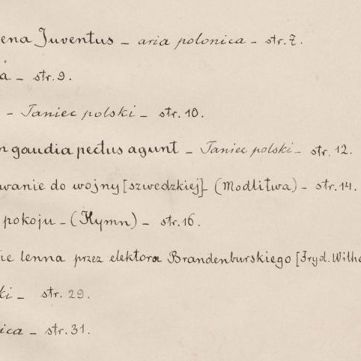 ena Juventus – aria polonica – str. 7.
a – str. 9.
– Taniec polski – str. 10.
n gaudia pectus agunt – Taniec polski – str. 12.
wanie do wojny [szwedzkiej] – (Modlitwa) – str. 14.
pokoju – (Hymn) – str. 16.
ie lenna przez elektora Brandenburskiego [Fryd. Wilh
ki – str. 29.
ica – str. 31.